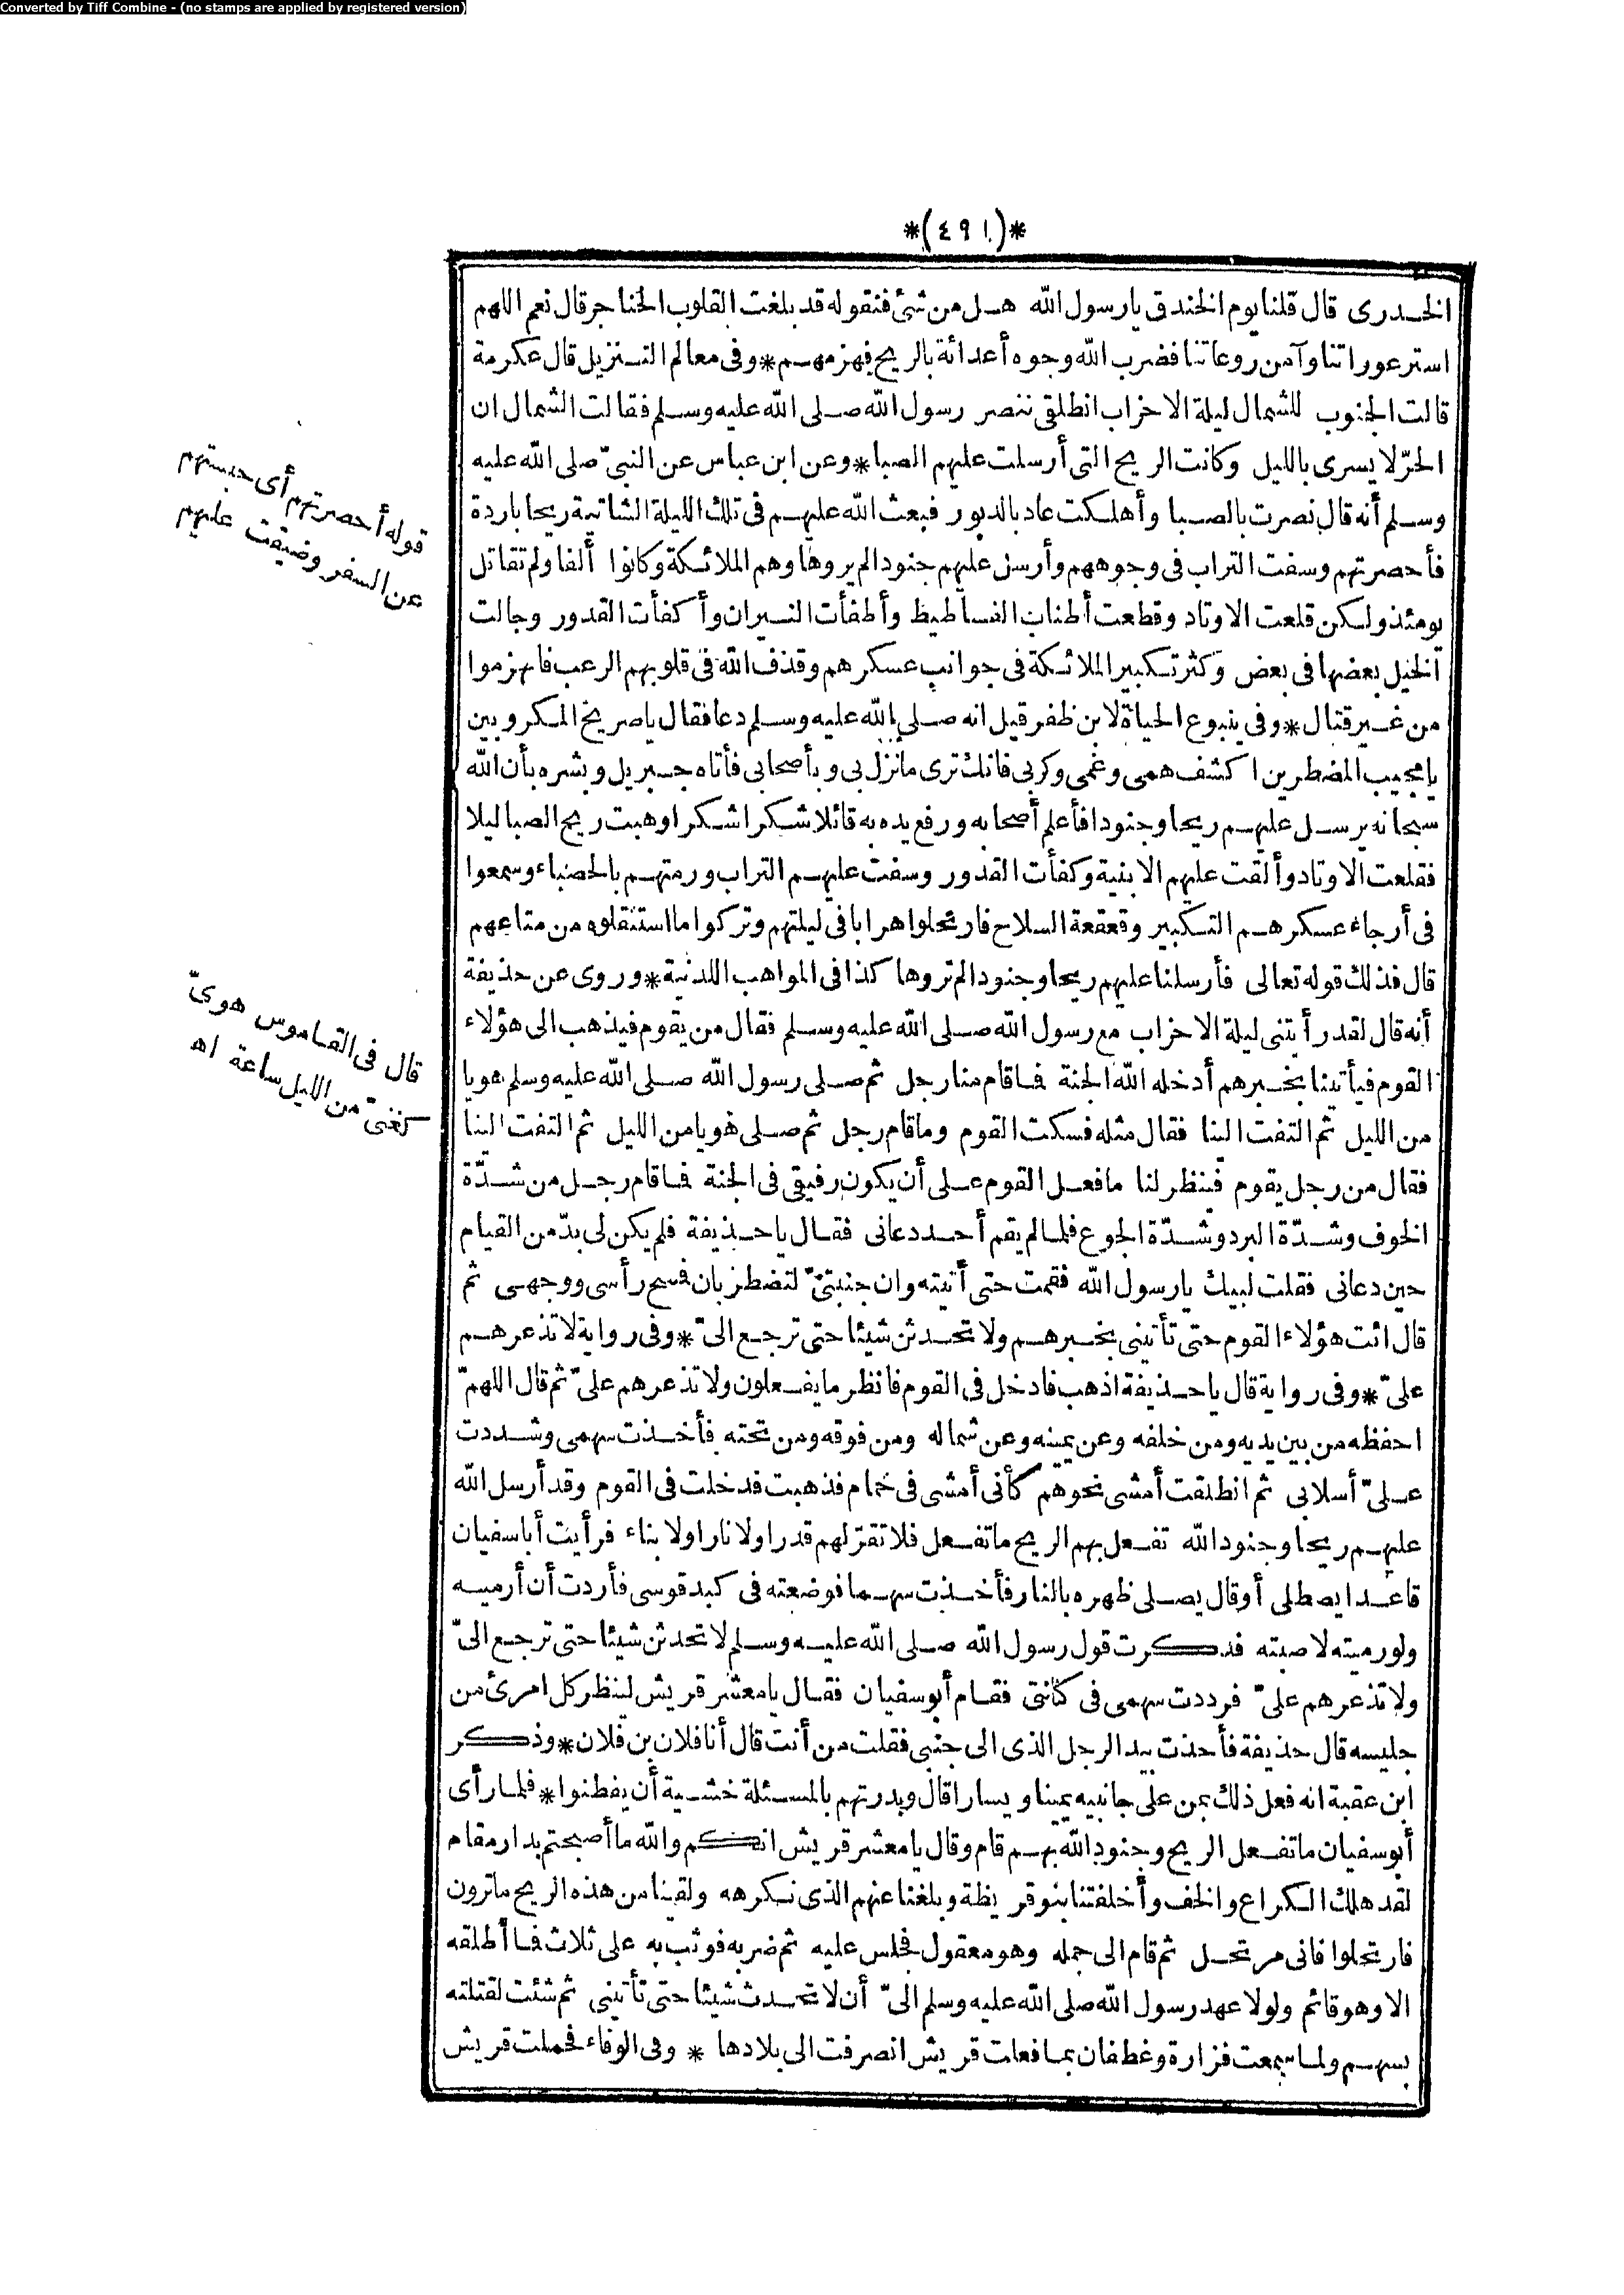 Converted by Tiff Combine - (no stamps are applied by registered version)
*(٤٩١)*
الخدرى قال قلنا يوم الخندق يا رسول الله هل من شئ فنقوله قد بلغت القلوب الحناجر قال نعم اللهم
استر عوراتنا وآمن روعاتنا فضرب الله وجوه أعدائه بالريح فهزمهم * وفى معالم التنزيل قال عكرمة
قالت الجنوب للشمال ليلة الاحزاب انطلقى ننصر رسول الله صلى الله عليه وسلم فقالت الشمال ان
الحرّ لا يسرى بالليل وكانت الريح التى أرسلت عليهم الصبا * وعن ابن عباس عن النبىّ صلى الله عليه
وسلم أنه قال نصرت بالصبا وأهلكت عاد بالدبور فبعث الله عليهم فى تلك الليلة الشاتية ريحا باردة
فأحصرتهم وسفت التراب فى وجوههم وأرسل عليهم جنودا لم يروها وهم الملائكة وكانوا ألفا ولم تقاتل
يومئذ ولكن قلعت الاوتاد وقطعت أطناب الفساطيط وأطفأت النيران وأكفأت القدور وجالت
الخيل بعضها فى بعض وكثر تكبير الملائكة فى جوانب عسكرهم وقذف الله فى قلوبهم الرعب فانهزموا
من غير قتال * وفى ينبوع الحياة لابن ظفر قيل انه صلى الله عليه وسلم دعا فقال يا صريخ المكروبين
يا مجيب المضطرين اكشف همى وغمى وكربى فانك ترى ما نزل بى وبأصحابى فأتاه جبريل وبشره بأن الله
سبحانه يرسل عليهم ريحا وجنودا فأعلم أصحابه ورفع يده به قائلا شكرا شكرا وهبت ريح الصبا ليلا
فقلعت الاوتاد وألقت عليهم الابنية وكفأت القدور وسفت عليهم التراب ورمتهم بالحصباء وسمعوا
فى أرجاء عسكرهم التكبير وقعقعة السلاح فارتحلوا هرابا فى ليلتهم وتركوا ما استثقلوه من متاعهم
قال فذلك قوله تعالى فأرسلنا عليهم ريحا وجنودا لم تروها كذا فى المواهب اللدنية * وروى عن حذيفة
أنه قال لقد رأيتنى ليلة الاحزاب مع رسول الله صلى الله عليه وسلم فقال من يقوم فيذهب الى هؤلاء
القوم فيأتينا بخبرهم أدخله الله الجنة فما قام منا رجل ثم صلى رسول الله صلى الله عليه وسلم هويا
من الليل ثم التفت الينا فقال مثله فسكت القوم وما قام رجل ثم صلى هويا من الليل ثم التفت الينا
فقال من رجل يقوم فينظر لنا ما فعل القوم على أن يكون رفيقى فى الجنة فما قام رجل من شدّة
الخوف وشدّة البرد وشدّة الجوع فلما لم يقم أحد دعانى فقال يا حذيفة فلم يكن لى بدّ من القيام
حين دعانى فقلت لبيك يا رسول الله فقمت حتى أتيته وان جنبتىّ لتضطربان فمسح رأسى ووجهى ثم
قال ائت هؤلاء القوم حتى تأتينى بخبرهم ولا تحدثن شيئا حتى ترجع الىّ * وفى رواية لا تذعرهم
علىّ * وفى رواية قال يا حذيفة اذهب فادخل فى القوم فانظر ما يفعلون ولا تذعرهم علىّ ثم قال اللهمّ
احفظه من بين يديه ومن خلفه وعن يمينه وعن شماله ومن فوقه ومن تحته فأخذت سهمى وشددت
علىّ أسلابى ثم انطلقت أمشى نحوهم كأنى أمشى فى حمام فذهبت فدخلت فى القوم وقد أرسل الله
عليهم ريحا وجنود الله تفعل بهم الريح ما تفعل فلا تقرّ لهم قدرا ولا نارا ولا بناء فرأيت أبا سفيان
قاعدا يصطلى أو قال يصلى ظهره بالنار فأخذت سهما فوضعته فى كبد قوسى فأردت أن أرميه
ولو رميته لاصبته فذكرت قول رسول الله صلى الله عليه وسلم لا تحدثن شيئا حتى ترجع الىّ
ولا تذعرهم علىّ فرددت سهمى فى كنانتى فقام أبو سفيان فقال يا معشر قريش لينظر كل امرئ من
جليسه قال حذيفة فأخذت بيد الرجل الذى الى جنبى فقلت من أنت قال أنا فلان بن فلان * وذكر
ابن عقبة انه فعل ذلك بمن على جانبيه يمينا ويسارا قال وبدرتهم بالمسئلة خشية أن يفطنوا * فلما رأى
أبو سفيان ما تفعل الريح وجنود الله بهم قام وقال يا معشر قريش انكم والله ما أصبحتم بدار مقام
لقد هلك الكراع والخف وأخلفتنا بنو قريظة وبلغنا عنهم الذى نكرهه ولقينا من هذه الريح ما ترون
فارتحلوا فانى مرتحل ثم قام الى جمله وهو معقول فجلس عليه ثم ضربه فوثب به على ثلاث فما أطلقه
الا وهو قائم ولولا عهد رسول الله صلى الله عليه وسلم الىّ أن لا تحدث شيئا حتى تأتينى ثم شئت لقتلته
بسهم ولما سمعت فزارة وغطفان بما فعلت قريش انصرفت الى بلادها * وفى الوفاء فحملت قريش
قوله أحصرتهم أى حبستهم
عن السفر وضيقت عليهم
قال فى القاموس هوىّ
كغنىّ من الليل ساعة اه